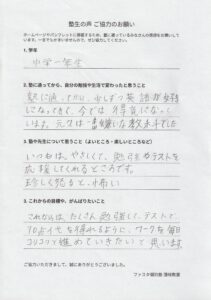 塾生の声 ご協力のお願い
ホームページやパンフレットに掲載するため、塾に通っているみなさんの感想をお願いして
います。一言でもかまいませんので、ぜひ協力してください。
1. 学年
中学一年生
2. 塾に通ってから、自分の勉強や生活で変わったと思うこと
塾に通ってから、少しずつ英語が好き
になってきて、今では得意になって
います。元々は一番嫌いな教科でした
2. 塾や先生について思うこと（よいところ・楽しいところなど）
いつもは、やさしくて、勉強やテストを
応援してくれるところです。
怒ると、怖い
3. これからの目標や、がんばりたいこと
これからは、たくさん勉強して、テストで、
90点イ を得れるように、ワークを毎日
コツコツと進めていきたいと思います。
ご協力いただきまして、誠にありがとうございました。
ファスタ個別塾